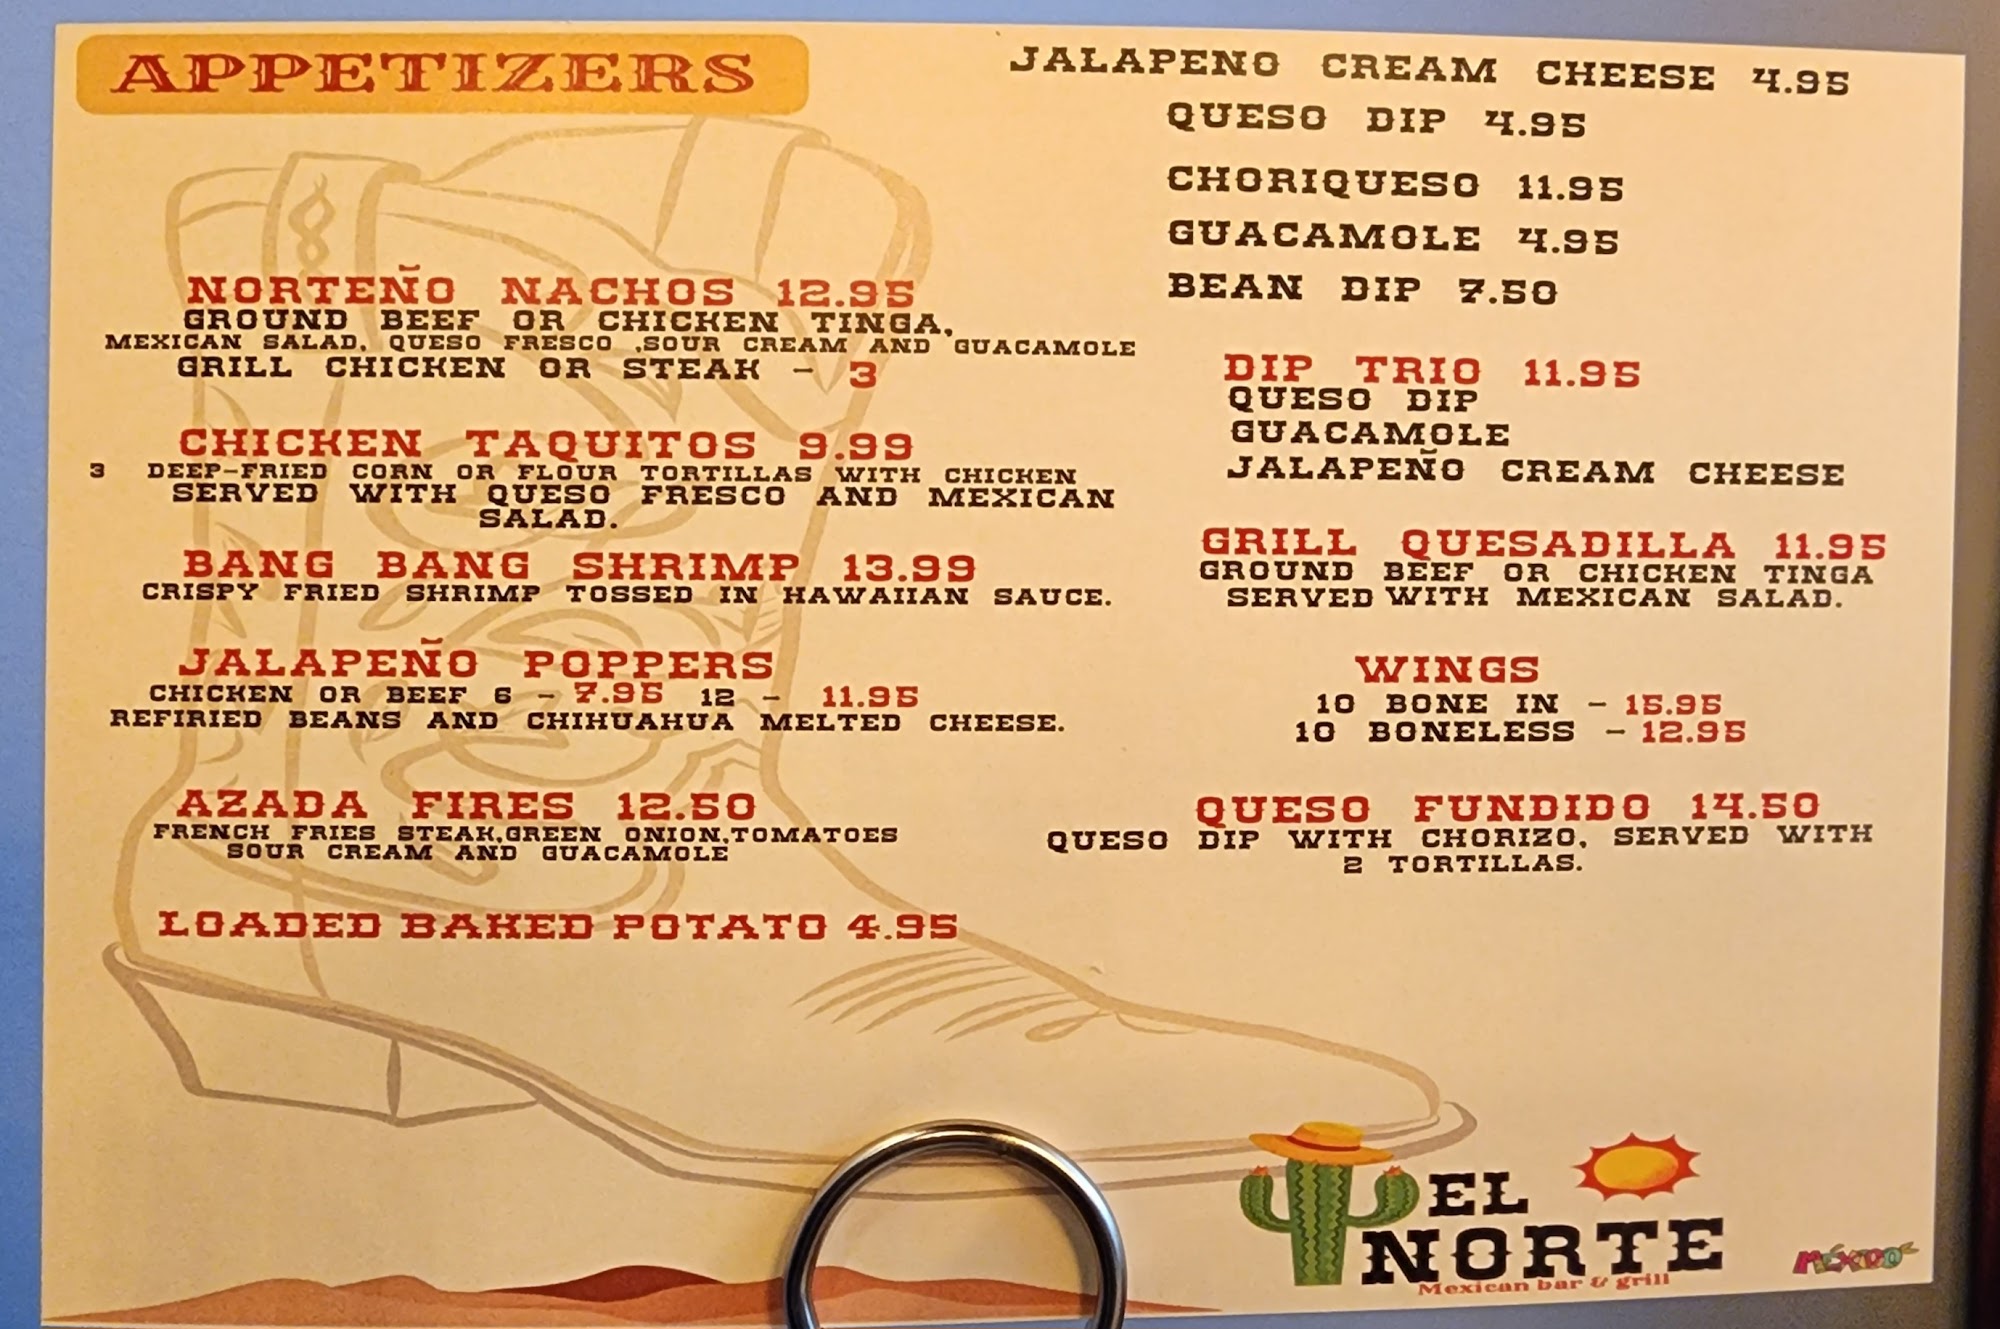 APPETIZERS
NORTEÑO NACHOS 12.95
GROUND BEEF OR CHICKEN TINGA,
MEXICAN SALAD, QUESO FRESCO ,SOUR CREAM AND GUACAMOLE
GRILL CHICKEN OR STEAK - 3
CHICKEN TAQUITOS 9.99
3 DEEP-FRIED CORN OR FLOUR TORTILLAS WITH CHICKEN
SERVED WITH QUESO FRESCO AND MEXICAN
SALAD.
BANG BANG SHRIMP 13.99
CRISPY FRIED SHRIMP TOSSED IN HAWAIIAN SAUCE.
JALAPEÑO POPPERS
CHICKEN OR BEEF 6 - 7.95 12 - 11.95
REFIRIED BEANS AND CHIHUAHUA MELTED CHEESE.
AZADA FIRES 12.50
FRENCH FRIES STEAK,GREEN ONION,TOMATOES
SOUR CREAM AND GUACAMOLE
LOADED BAKED POTATO 4.95
JALAPENO CREAM CHEESE 4.95
QUESO DIP 4.95
CHORIQUESO 11.95
GUACAMOLE 4.95
BEAN DIP 7.50
DIP TRIO 11.95
QUESO DIP
GUACAMOLE
JALAPEÑO CREAM CHEESE
GRILL QUESADILLA 11.95
GROUND BEEF OR CHICKEN TINGA
SERVED WITH MEXICAN SALAD.
WINGS
10 BONE IN - 15.95
10 BONELESS - 12.95
QUESO FUNDIDO 14.50
QUESO DIP WITH CHORIZO, SERVED WITH
2 TORTILLAS.
EL
NORTE
Mexican bar & grill
MÉXICO